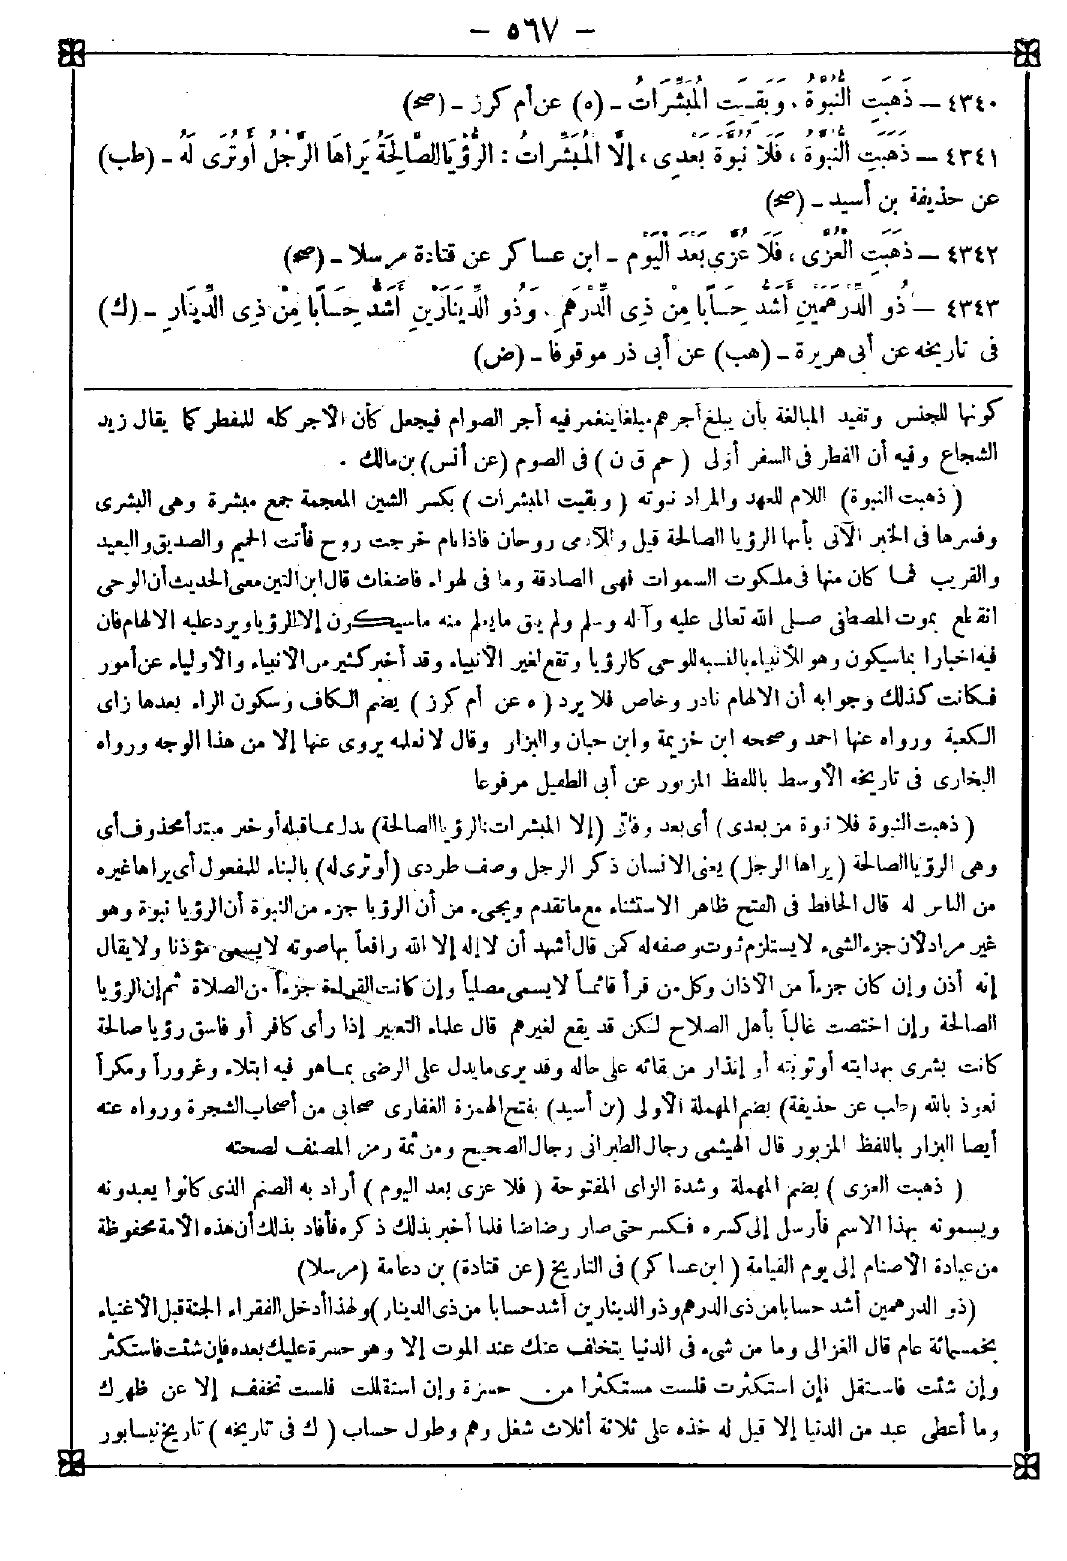 — ٥٦٧ —
٤٣٤٠ — ذَهَبَتِ النُّبُوَّةُ ، وَبَقِيَتِ الْمُبَشِّرَاتُ – (ه) عن أم كرز – (صح)
٤٣٤١ — ذَهَبَتِ النُّبُوَّةُ ، فَلَا نُبُوَّةَ بَعْدِى ، إِلَّا الْمُبَشِّرَاتُ : الرُّؤْيَا الصَّالِحَةُ يَرَاهَا الرَّجُلُ أَوْ تُرَى لَهُ – (طب)
عن حذيفة بن أسيد – (صح)
٤٣٤٢ — ذَهَبَتِ الْعُزَّى ، فَلَا عُزَّى بَعْدَ الْيَوْمِ – ابن عساكر عن قتادة مرسلا – (صح)
٤٣٤٣ — ذُو الدِّرْهَمَيْنِ أَشَدُّ حِسَابًا مِنْ ذِى الدِّرْهَمِ ، وَذُو الدِّينَارَيْنِ أَشَدُّ حِسَابًا مِنْ ذِى الدِّينَارِ – (ك)
فى تاريخه عن أبى هريرة – (هب) عن أبى ذر موقوفا – (ض)
كونها للجنس وتفيد المبالغة بأن يبلغ أجرهم مبلغا ينغمر فيه أجر الصوام فيجعل كأن الأجر كله للمفطر كما يقال زيد
الشجاع وفيه أن الفطر فى السفر أولى (حم ق ن) فى الصوم (عن أنس) بن مالك .
(ذهبت النبوة) اللام للعهد والمراد نبوته (وبقيت المبشرات) بكسر الشين المعجمة جمع مبشرة وهى البشرى
وفسرها فى الخبر الآتى بأنها الرؤيا الصالحة قيل وللآدمى روحان فاذا نام خرجت روح فأتت الحميم والصديق والبعيد
والقريب فما كان منها فى ملكوت السموات فهى الصادقة وما فى الهواء فأضغاث قال ابن التين معنى الحديث أن الوحى
انقطع بموت المصطفى صلى الله تعالى عليه وآله وسلم ولم يبق ما يعلم منه ما سيكون إلا الرؤيا ويرد عليه الالهام فان
فيه اخبارا بما سيكون وهو للأنبياء بالنسبة للوحى كالرؤيا وتقع لغير الأنبياء وقد أخبر كثير من الأنبياء والأولياء عن أمور
فكانت كذلك وجوابه أن الالهام نادر وخاص فلا يرد (ه عن أم كرز) بضم الكاف وسكون الراء بعدها زاى
الكعبة ورواه عنها احمد وصححه ابن خزيمة وابن حبان والبزار وقال لا نعلمه يروى عنها إلا من هذا الوجه ورواه
البخارى فى تاريخه الأوسط باللفظ المزبور عن أبى الطفيل مرفوعا
(ذهبت النبوة فلا نبوة من بعدى) أى بعد وفاتى (إلا المبشرات الرؤيا الصالحة) بدل مما قبله أو خبر مبتدأ محذوف أى
وهى الرؤيا الصالحة (يراها الرجل) يعنى الانسان ذكر الرجل وصف طردى (أو ترى له) بالبناء للمفعول أى يراها غيره
من الناس له قال الحافظ فى الفتح ظاهر الاستثناء مع ما تقدم ويجىء من أن الرؤيا جزء من النبوة أن الرؤيا نبوة وهو
غير مراد لأن جزء الشىء لا يستلزم ثبوت وصفه له كمن قال أشهد أن لا إله إلا الله رافعاً بها صوته لا يسمى مؤذنا ولا يقال
إنه أذن وإن كان جزءاً من الأذان وكل من قرأ قائمـاً لا يسمى مصلياً وإن كانت القراءة جزءاً من الصلاة ثم إن الرؤيا
الصالحة وإن اختصت غالباً بأهل الصلاح لكن قد يقع لغيرهم قال علماء التعبير إذا رأى كافر أو فاسق رؤيا صالحة
كانت بشرى بهدايته أو توبته أو إنذار من بقائه على حاله وقد يرى ما يدل على الرضى بما هو فيه ابتلاء وغروراً ومكراً
نعوذ بالله (طب عن حذيفة) بضم المهملة الأولى (بن أسيد) بفتح الهمزة الغفارى صحابى من أصحاب الشجرة ورواه عنه
أيضا البزار باللفظ المزبور قال الهيثمى رجال الطبرانى رجال الصحيح ومن ثمة رمز المصنف لصحته
(ذهبت العزى) بضم المهملة وشدة الزاى المفتوحة (فلا عزى بعد اليوم) أراد به الصنم الذى كانوا يعبدونه
ويسمونه بهذا الاسم فأرسل إلى كسره فكسر حتى صار رضاضا فلما أخبر بذلك ذكره فأفاد بذلك أن هذه الأمة محفوظة
من عبادة الأصنام إلى يوم القيامة (ابن عساكر) فى التاريخ (عن قتادة) بن دعامة (مرسلا)
(ذو الدرهمين أشد حسابا من ذى الدرهم وذو الدينارين أشد حسابا من ذى الدينار) ولهذا أدخل الفقراء الجنة قبل الأغنياء
بخمسمائة عام قال الغزالى وما من شىء فى الدنيا يتخلف عنك عند الموت إلا وهو حسرة عليك بعده فإن شئت فاستكثر
وإن شئت فاستقل فإن استكثرت فلست مستكثرا من حسرة وإن استقللت فلست تخفف إلا عن ظهرك
وما أعطى عبد من الدنيا إلا قيل له خذه على ثلاثة أثلاث شغل وهم وطول حساب (ك فى تاريخه) تاريخ نيسابور